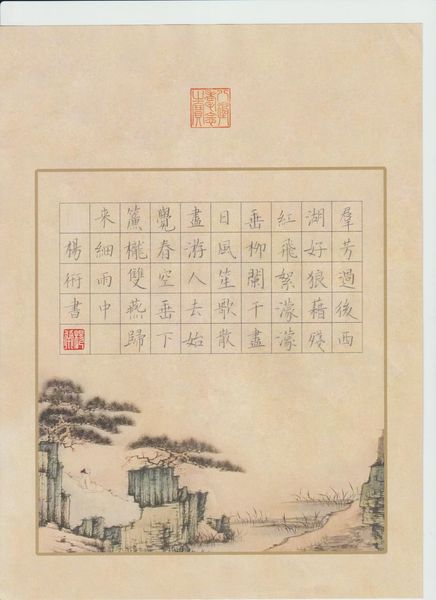 八徵耄念之寶
羣芳過後西
湖好狼藉殘
紅飛絮濛濛
垂柳闌干盡
日風笙歌散
盡游人去始
覺春空垂下
簾櫳雙燕歸
来細雨中
楊書